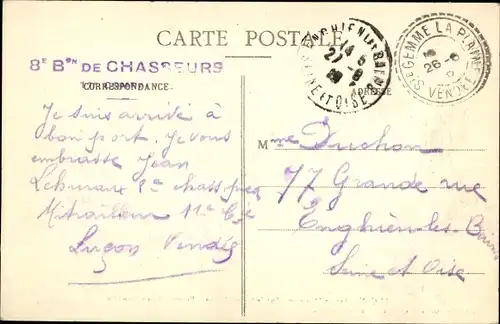 CARTE POSTALE
8E Bon DE CHASSEURS
CORRESPONDANCE
ADRESSE
ENGHIEN LES BAINS
14 5
27 -8
SEINE ET OISE
STE GEMME LA PLAINE
26-8
VENDEE
Je suis arrivé à
bon port, je vous
embrasse Jean
8e chass pied
Mitrailleur 11e Cie
Luçon Vendée
Mme Duchon
77 Grande rue
Enghien-les-Bains
Seine et Oise